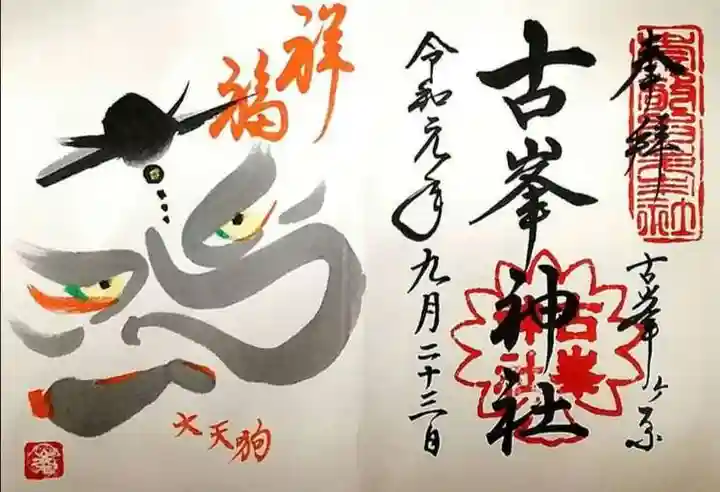 奉拝
古峯ヶ原
古峯神社
令和元年九月二十三日
祥福
大天狗